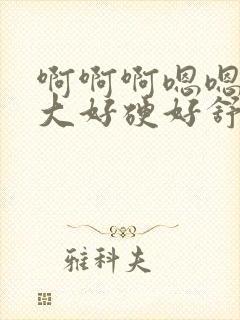 啊啊啊嗯嗯
大好硬好舒
雅科夫